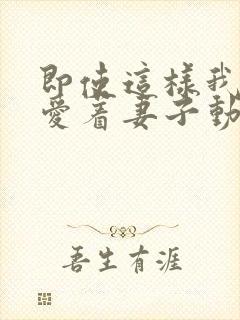 即使這樣我
愛着妻子動
吾生有涯